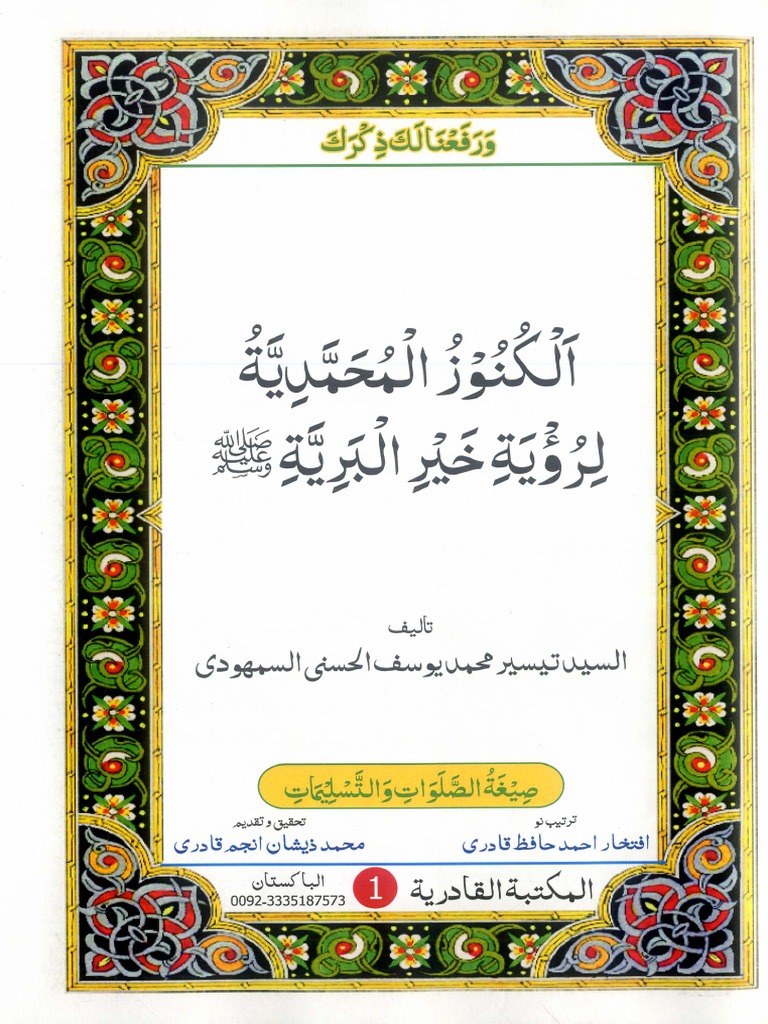 وَرَفَعْنَا لَكَ ذِكْرَكَ
اَلْكُنُوْزُ الْمُحَمَّدِيَّةُ
لِرُؤْيَةِ خَيْرِ الْبَرِيَّةِ ﷺ
تألیف
السید تیسیر محمد یوسف الحسنی السمهودی
صِيْغَةُ الصَّلَوَاتِ وَالتَّسْلِيْمَاتِ
ترتیب نو
افتخار احمد حافظ قادری
تحقیق و تقدیم
محمد ذیشان انجم قادری
المكتبة القادرية 1 الباکستان
0092-3335187573